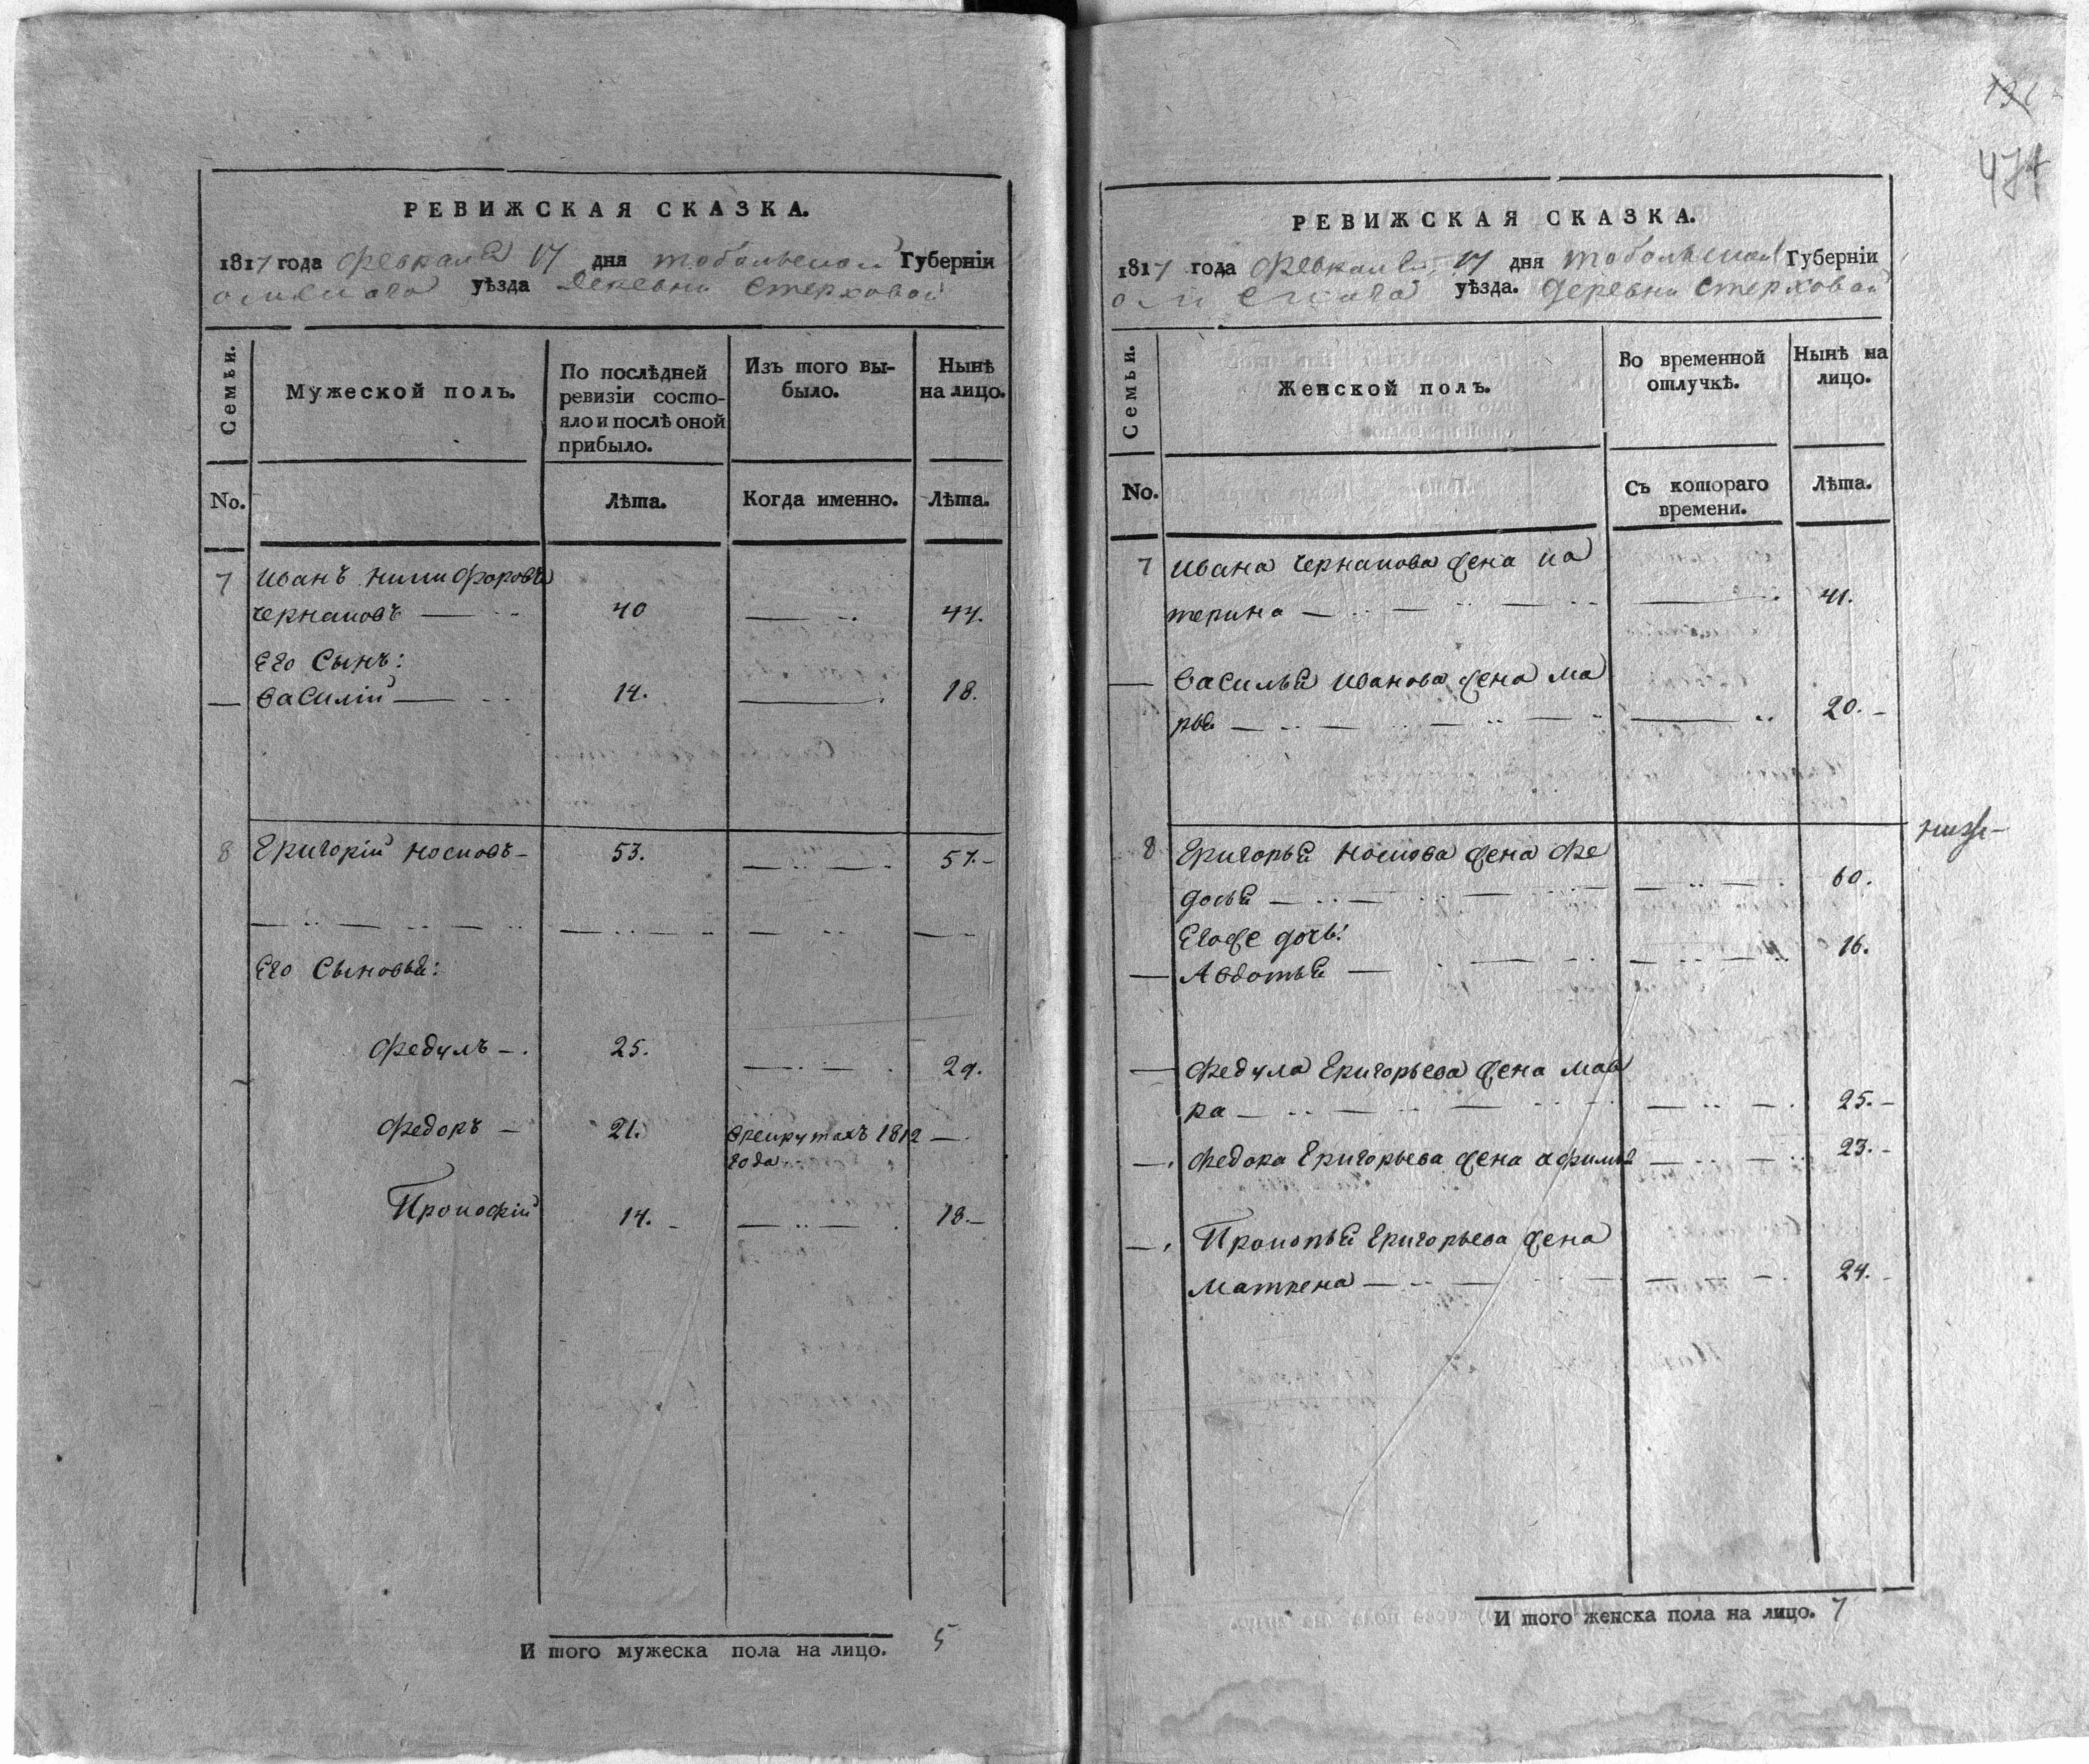 РЕВИЖСКАЯ СКАЗКА.
1817 года февраля 17 дня тобольской Губернїи
омскаго уѣзда деревни Стерховой
Семьи.
Мужеской полъ.
По послѣдней ревизїи состояло и послѣ оной прибыло.
Изъ того выбыло.
Нынѣ на лицо.
No.
Лѣта.
Когда именно.
Лѣта.
7 Иванъ Никифоровъ
Чернаковъ — 40 — 44.
Его Сынъ:
— Василїй — 14. — 18.
8 Григорїй Носковъ — 53. — 57.
Его Сыновья:
Федулъ — 25. — 29.
Федоръ — 21. врекрутахъ 1812 —
года
Прокофїй 14. — 18.
И того мужеска пола на лицо. 5
РЕВИЖСКАЯ СКАЗКА.
1817 года февраля 17 дня тобольской Губернїи
омскаго уѣзда. деревни Стерховой
Семьи.
Женской полъ.
Во временной отлучкѣ.
Нынѣ на лицо.
No.
Съ котораго времени.
Лѣта.
7 Ивана Чернакова жена ка
терина — 41.
— Василья Иванова жена ма
рья — 20.
8 Григорья Носкова жена фе
досья — 60.
Егоже дочь:
— Авдотья — 16.
— Федула Григорьева жена мав
ра — 25.
— Федора Григорьева жена афимья — 23.
— Прокопья Григорьева жена
Матрена — 24.
И того женска пола на лицо. 7